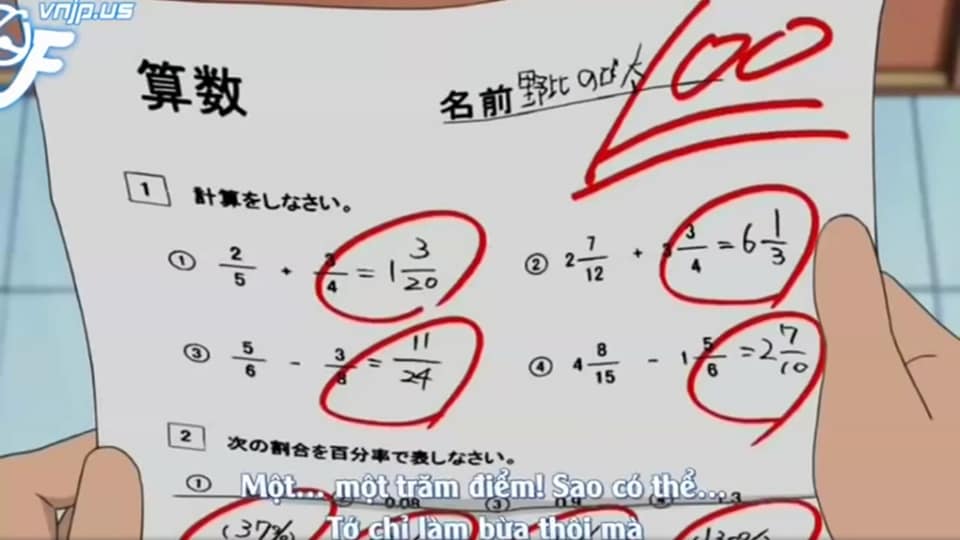 vnjp.us
F
算数
名前 野比のび太
100
1 計算をしなさい。
① 2/5 + 3/4 = 1 3/20
② 2 7/12 + 3 3/4 = 6 1/3
③ 5/6 - 3/8 = 11/24
④ 4 8/15 - 1 5/6 = 2 7/10
2 次の割合を百分率で表しなさい。
① 0.08 ③ 0.9 1.3
Một... một trăm điểm! Sao có thể...
Tớ chỉ làm bừa thôi mà
(37%)